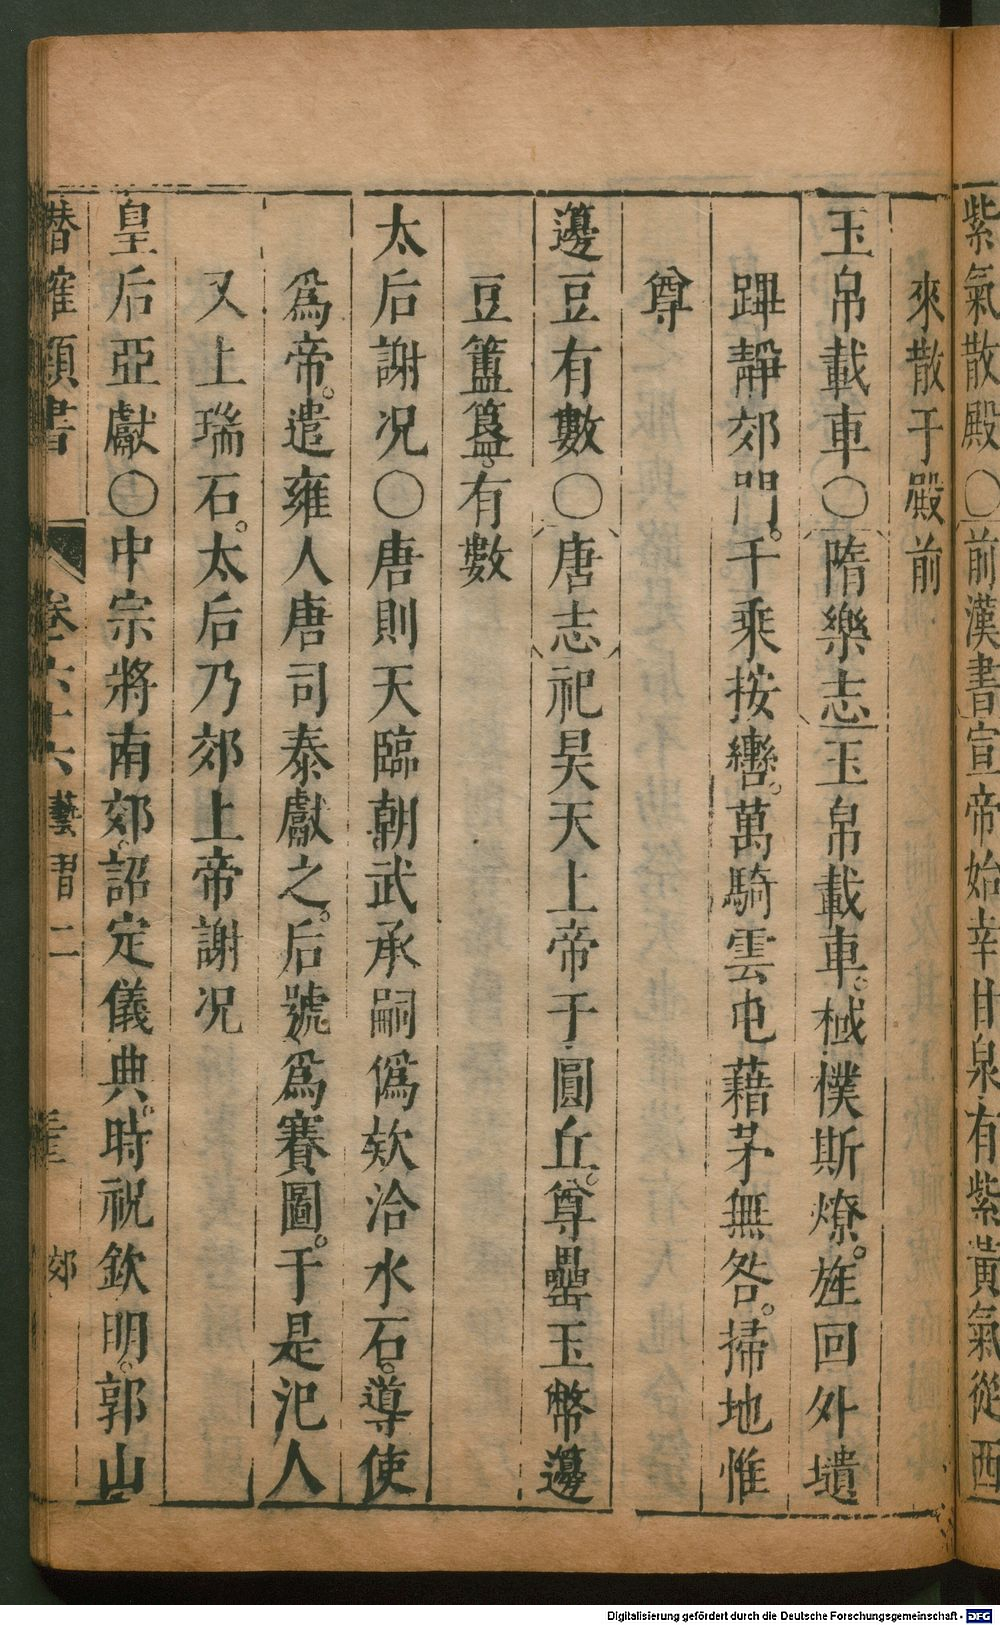 紫氣散殿〇前漢書宣帝始幸甘泉有紫黃氣從西
來散于殿前
玉帛載車〇隋樂志玉帛載車。棫樸斯燎。旌回外壝
蹕靜郊門。千乘按轡。萬騎雲屯藉茅無咎。掃地惟
尊
籩豆有數〇唐志祀昊天上帝于圓丘。尊罍玉幣籩
豆簠簋。有數
太后謝况〇唐則天臨朝武承嗣僞欵洽水石。導使
爲帝。遣雍人唐司泰獻之。后號爲賽圖。于是汜人
又上瑞石。太后乃郊上帝謝况
皇后亞獻〇中宗將南郊。詔定儀典。時祝欽明。郭山
潛確類書 卷六十六 藝習二 郊
Digitalisierung gefördert durch die Deutsche Forschungsgemeinschaft - DFG